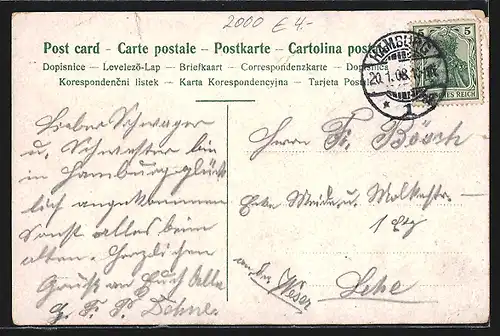 2000 € 4.-
Post card - Carte postale - Postkarte - Cartolina postale
Dopisnice - Levelező-Lap - Briefkaart - Correspondenzkarte - Dopisnica
Korespondenční listek - Karta Korespondencyjna - Tarjeta Postal
HAMBURG
20.1.08.
* 1
5 5
DEUTSCHES REICH
Lieber Schwager
u. Schwester bin
in Hamburg glück
lich angekommen
Sonst alles beim
alten. Herzlichen
Gruß an Euch Alle
Herrn Fr. Bösch
Ecke Weide u. Moltkestr.
1 Etg
Lehe
an der Weser